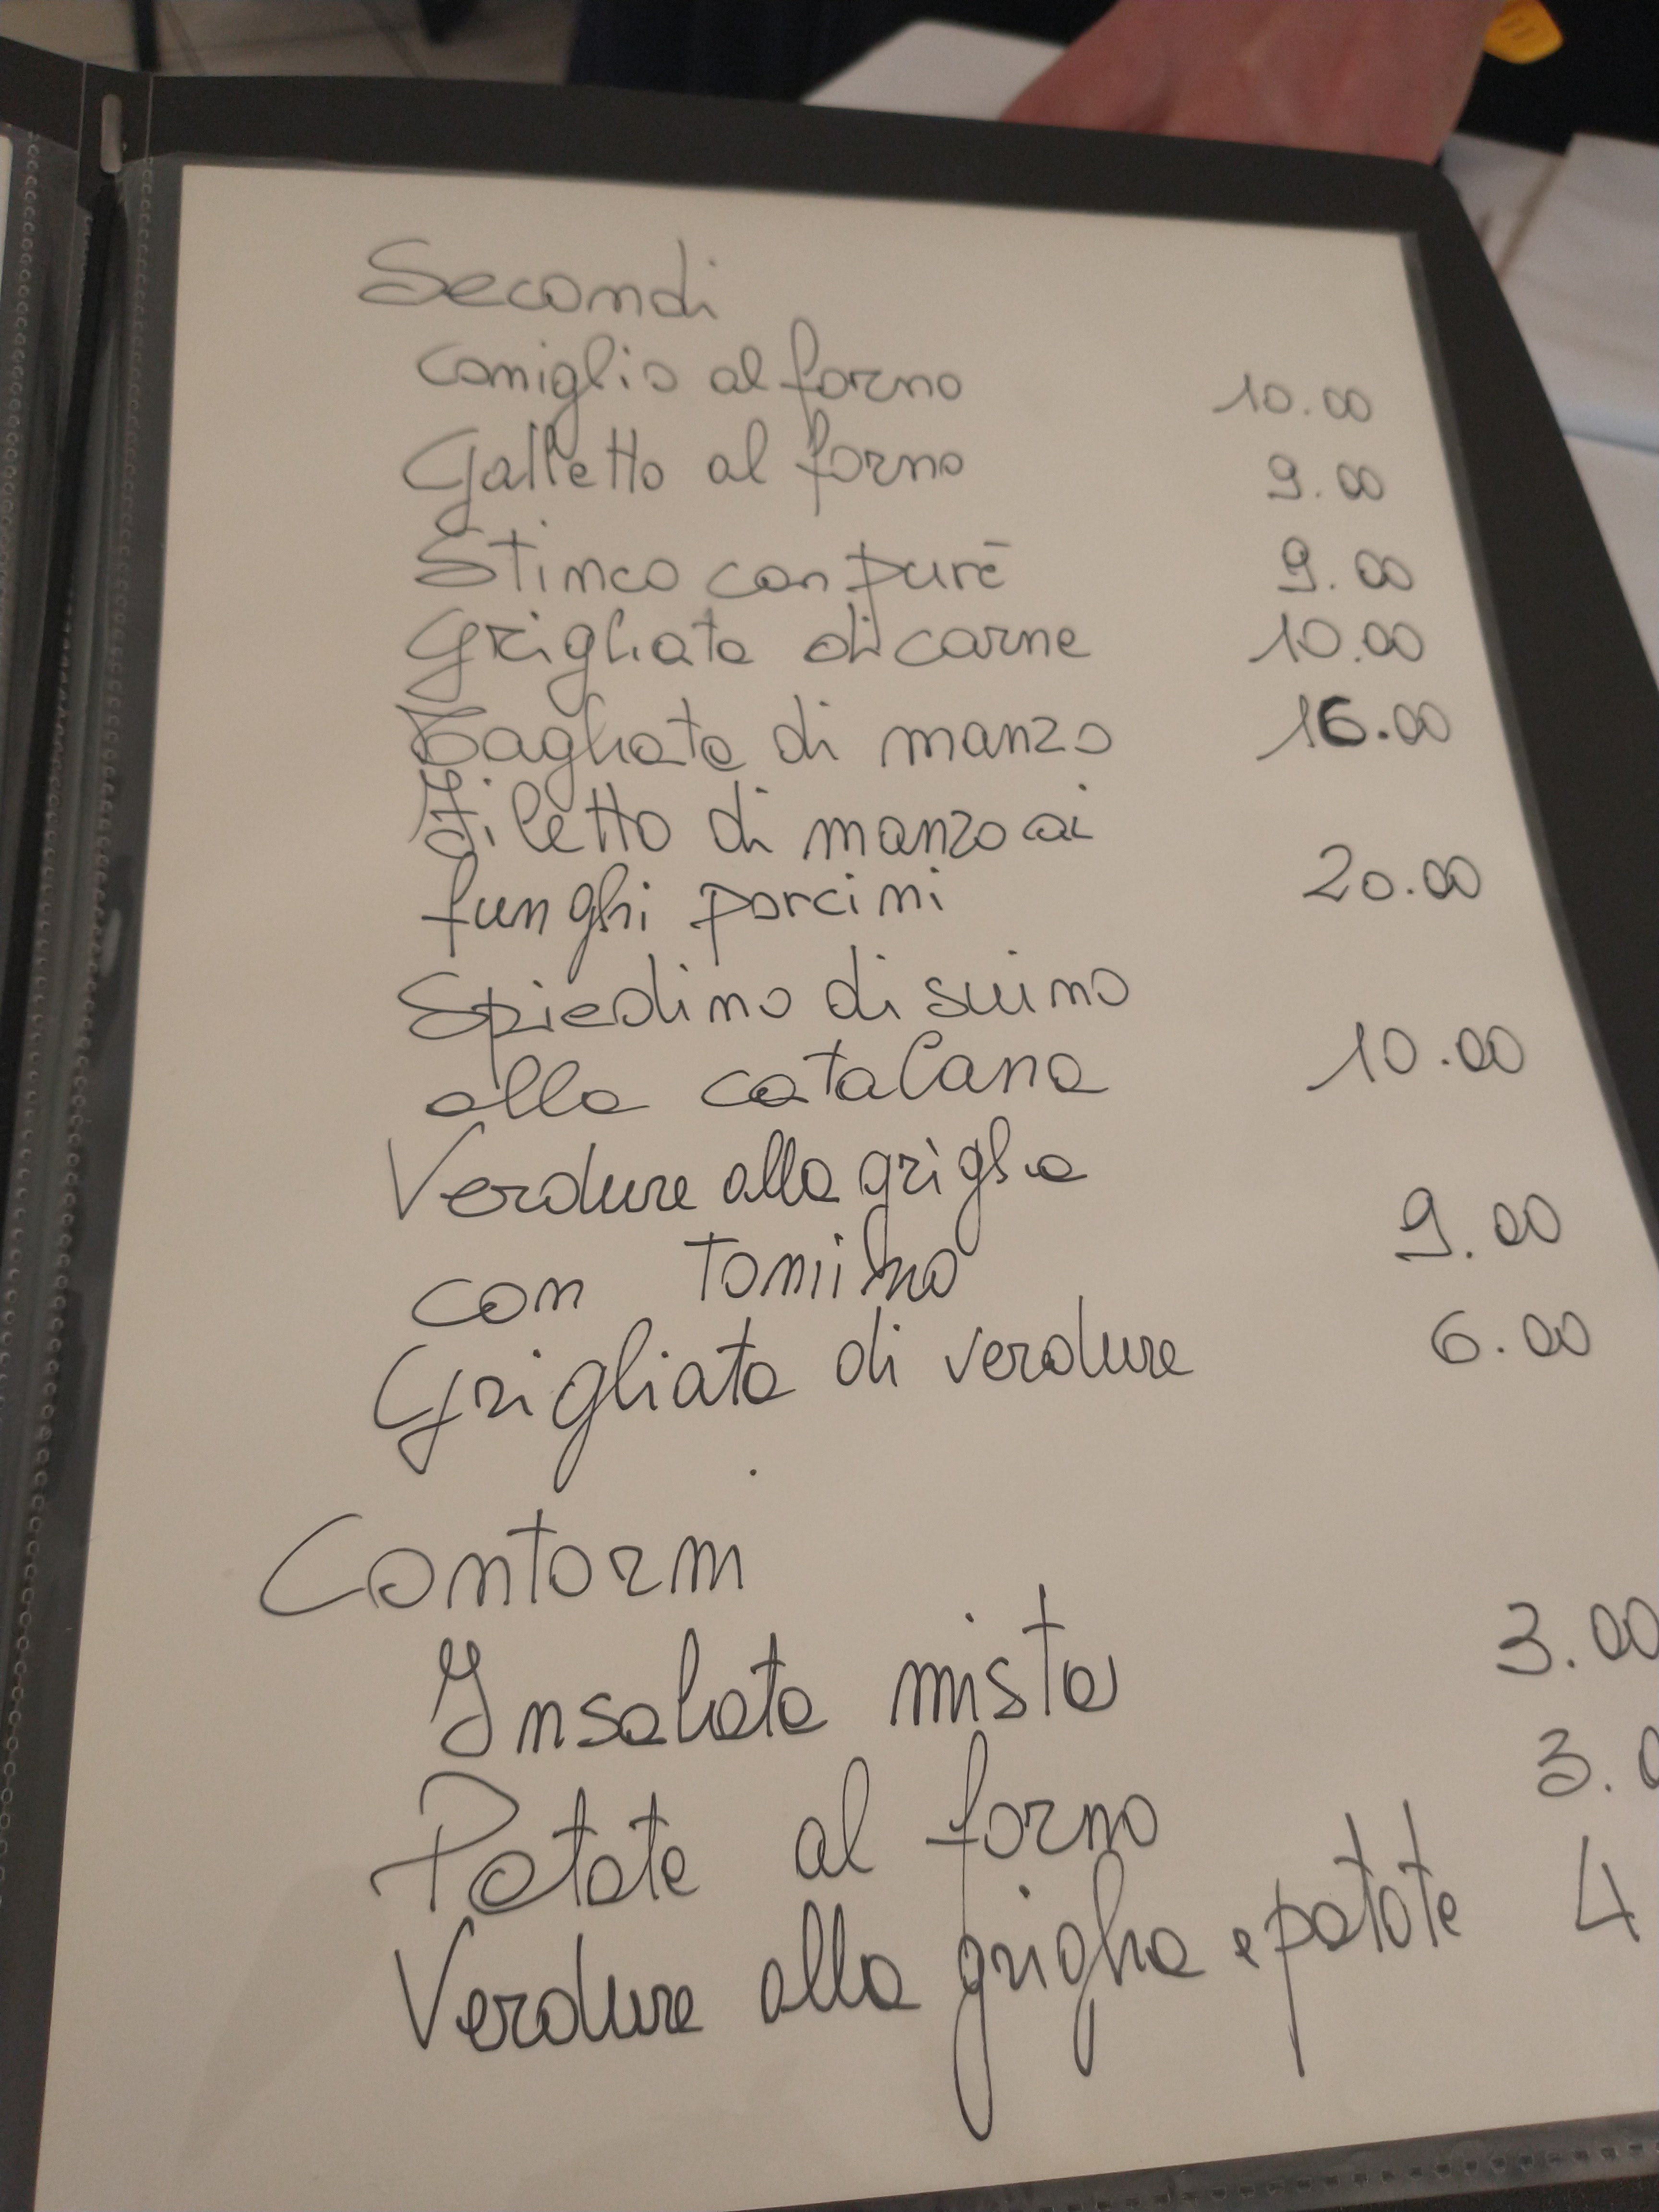 Secondi
Coniglio al forno 10.00
Galletto al forno 9.00
Stinco con purè 9.00
Grigliata di carne 10.00
Tagliata di manzo 16.00
Filetto di manzo ai
funghi porcini 20.00
Spiedino di suino
alla catalana 10.00
Verdure alla griglia
con Tomino 9.00
Grigliata di verdure 6.00
Contorni
Insalata mista 3.00
Patate al forno 3.0
Verdure alla griglia e patate 4